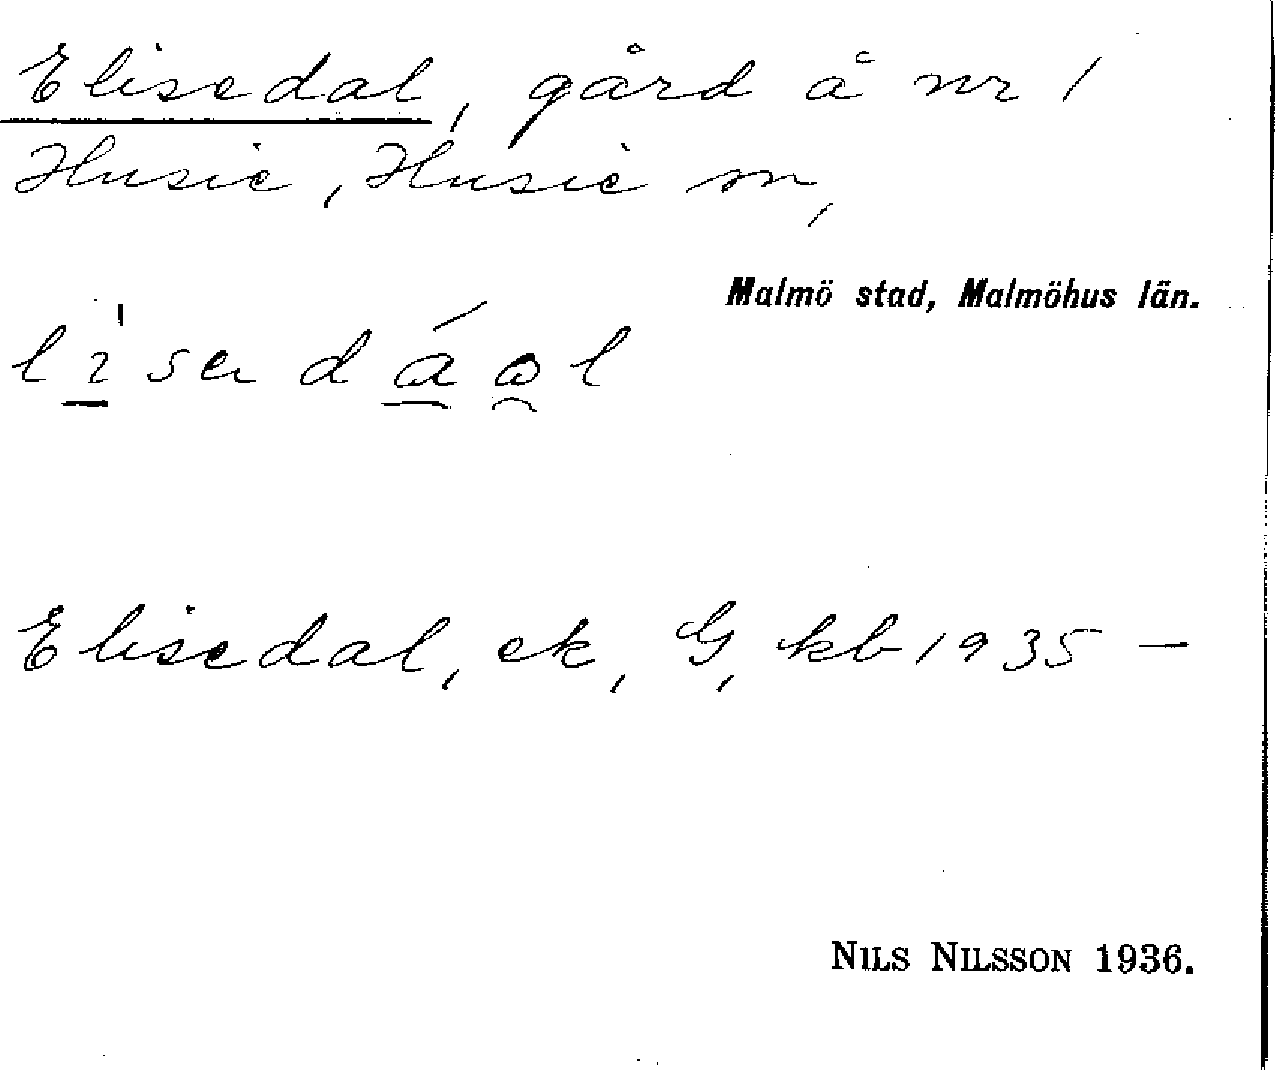 Elisedal, gård å nr 1
Husie, Husie sn,
Malmö stad, Malmöhus län.
Elisedal, ek, G, kb 1935 –
NILS NILSSON 1936.